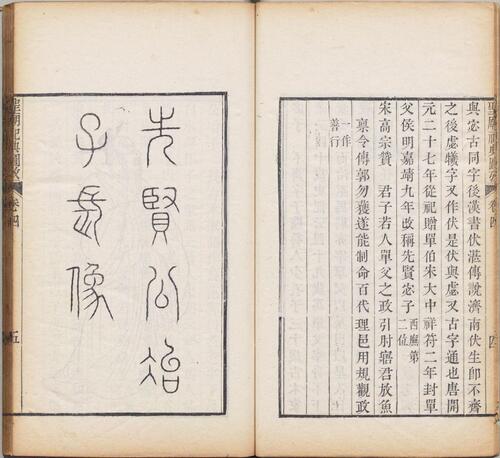 聖廟祀典圖攷 卷四 四
與宓古同字後漢書伏湛傳說濟南伏生卽不齊
之後虙犧字又作伏是伏與虙又古字通也唐開
元二十七年從祀贈單伯宋大中祥符二年封單
父侯明嘉靖九年改稱先賢宓子西廡第二位
宋高宗贊 君子若人單父之政引肘寤君放魚
稟令傅郭勿獲遂能制命百代理邑用規觀政
一作
善行
先賢公冶
子長像
聖廟祀典圖攷 卷四 五